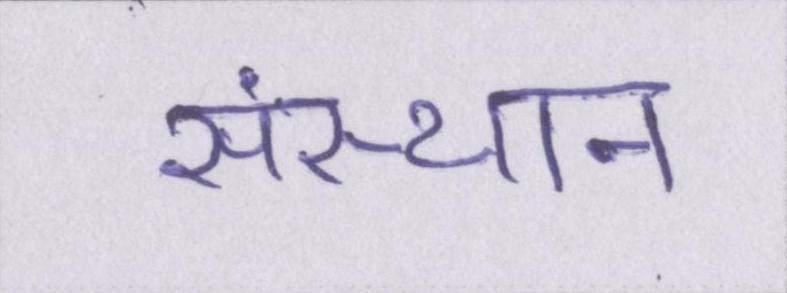 संस्थान